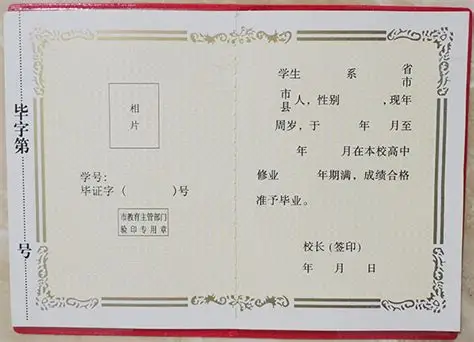 毕字第 号
相
片
学号:
毕证字 ( )号
市教育主管部门
验印专用章
学生 系 省
市
市
县 人，性别 ,现年
周岁，于 年 月至
年 月在本校高中
修业 年期满，成绩合格
准予毕业。
校长 (签印)
年 月 日